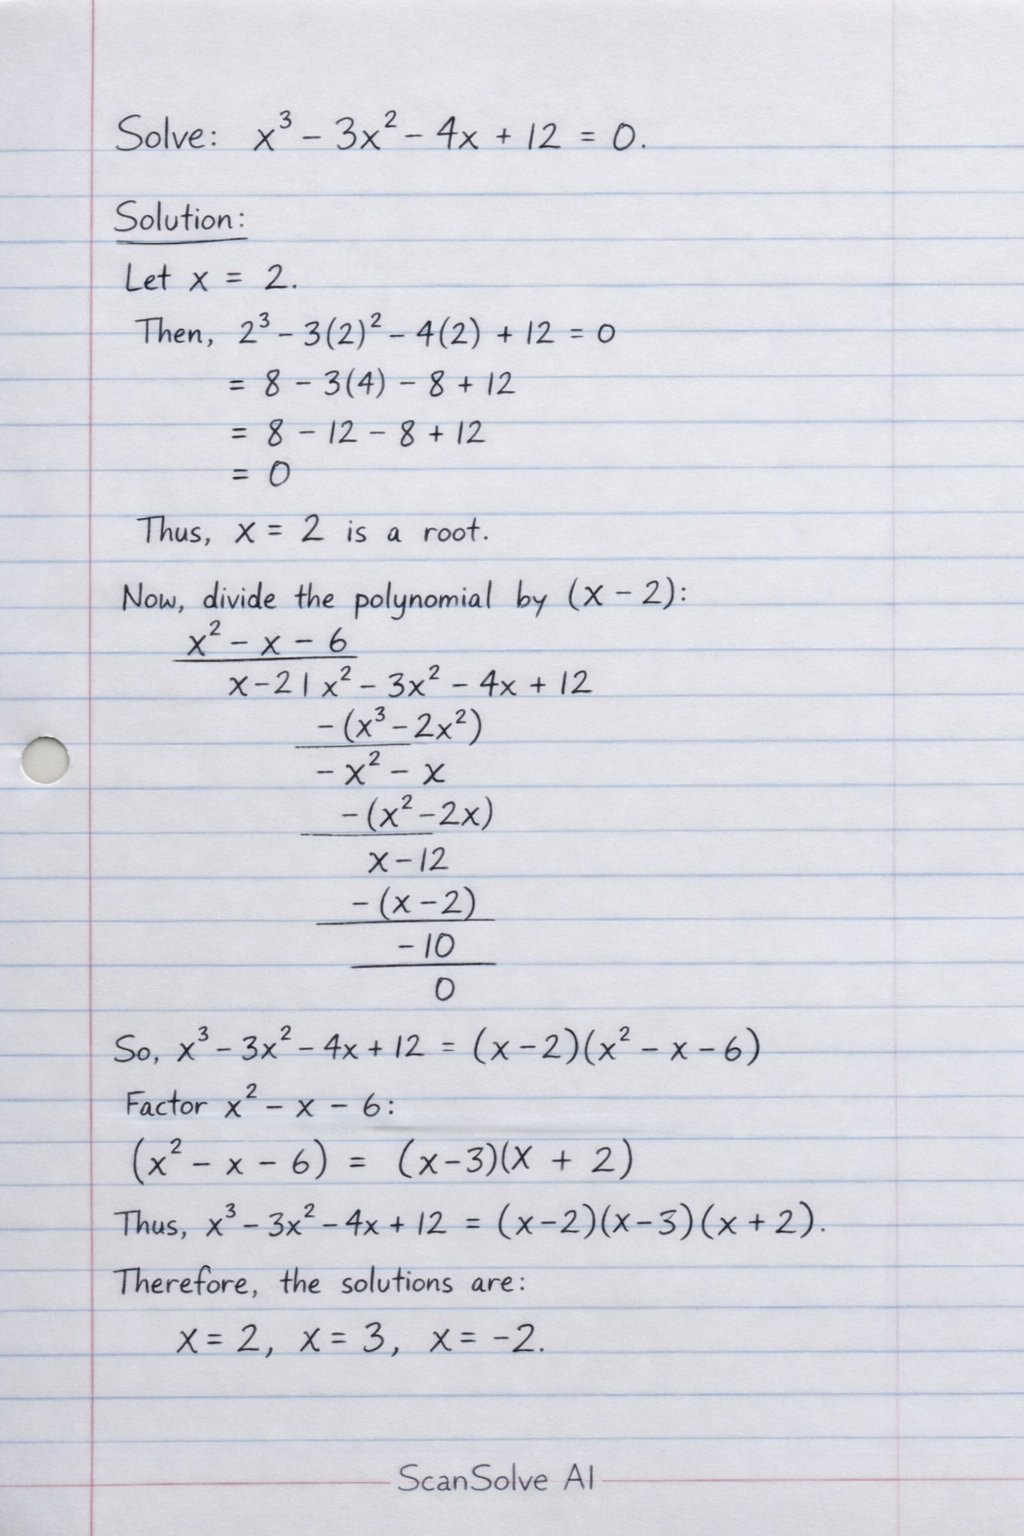 Solve: x³ − 3x² − 4x + 12 = 0.
Solution:
Let x = 2.
Then, 2³ − 3(2)² − 4(2) + 12 = 0
= 8 − 3(4) − 8 + 12
= 8 − 12 − 8 + 12
= 0
Thus, x = 2 is a root.
Now, divide the polynomial by (x − 2):
x² − x − 6
x−2 | x² − 3x² − 4x + 12
−(x³ − 2x²)
−x² − x
−(x² − 2x)
x − 12
−(x − 2)
−10
0
So, x³ − 3x² − 4x + 12 = (x − 2)(x² − x − 6)
Factor x² − x − 6:
(x² − x − 6) = (x−3)(x + 2)
Thus, x³ − 3x² − 4x + 12 = (x−2)(x−3)(x + 2).
Therefore, the solutions are:
x = 2, x = 3, x = −2.
ScanSolve AI